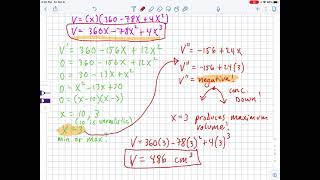 V = (x)(360-78x+4x²)
V = 360x-78x²+4x³
V' = 360-156x+12x²
0 = 360-156x+12x²
0 = 30-13x+x²
0 = x²-13x+30
0 = (x-10)(x-3)
x = 10, 3
(10 is unrealistic)
x = 3
min or max
V" = -156+24x
V" = -156+24(3)
V" = negative!
conc.
Down!
x=3 produces maximum
volume!
V = 360(3)-78(3)²+4(3)³
V = 486 cm³